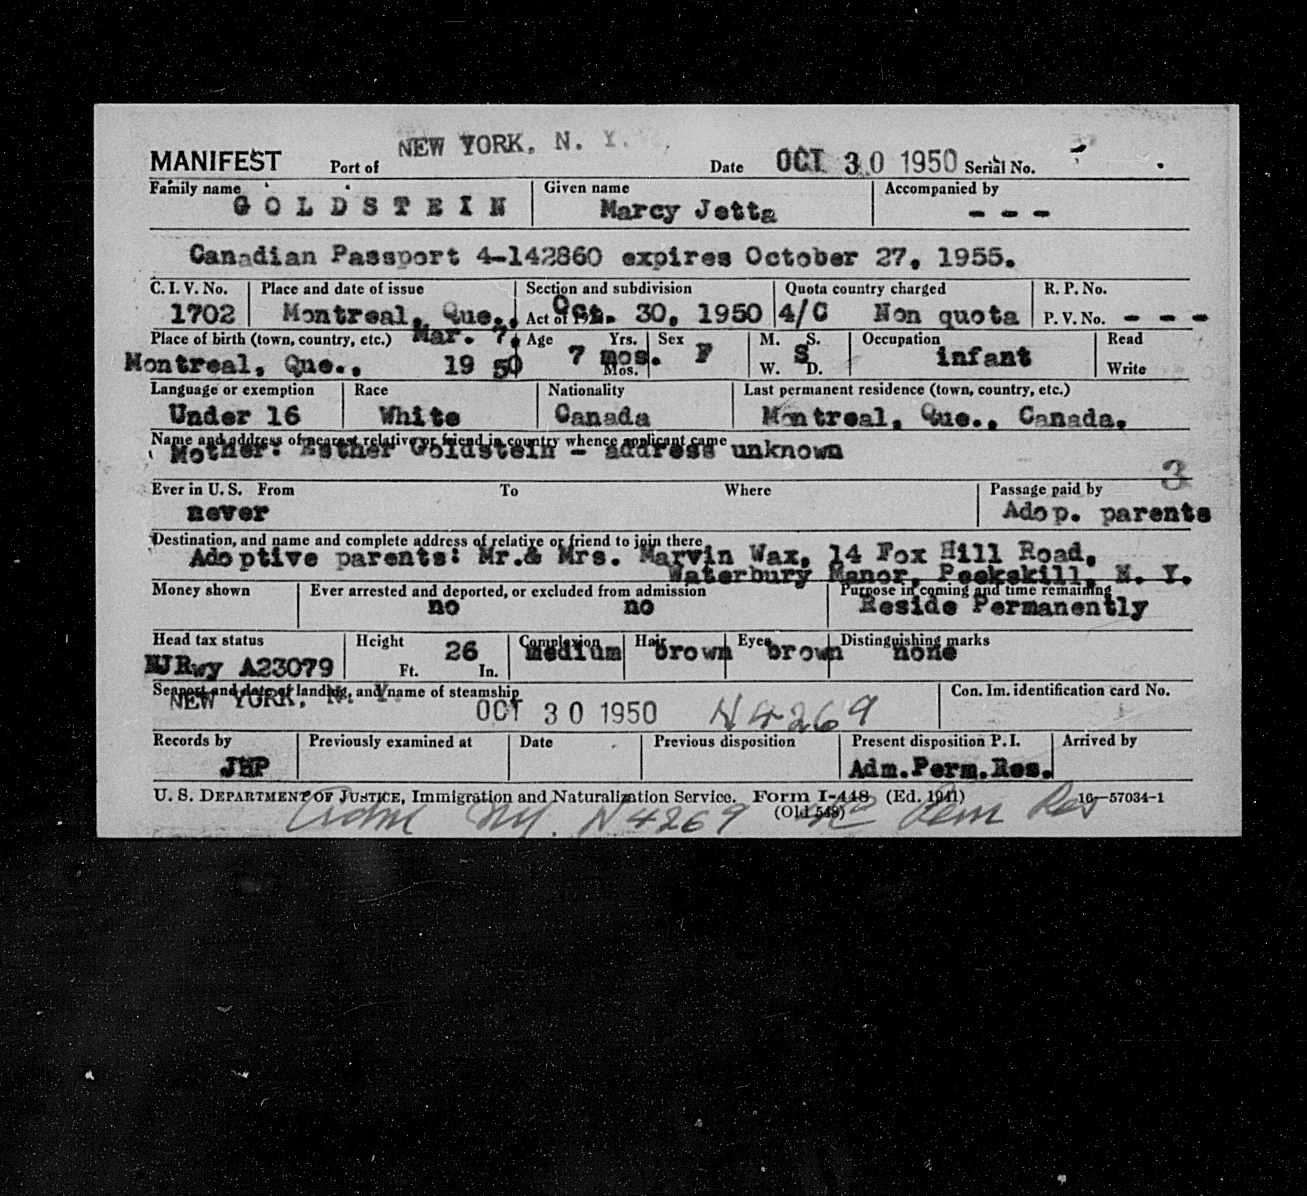 MANIFEST Port of NEW YORK, N. Y. Date OCT 30 1950 Serial No.
Family name GOLDSTEIN Given name Marcy Jetta Accompanied by - - -
Canadian Passport 4-142860 expires October 27, 1955.
C. I. V. No. Place and date of issue Section and subdivision Quota country charged R. P. No.
1702 Montreal, Que., Act of Oct. 30, 1950 4/C Non quota P. V. No. - - -
Place of birth (town, country, etc.) Mar. 7, Age Yrs. Sex M. S. Occupation Read
Montreal, Que., 19 50 7 mos. Mos. F S W. D. infant Write
Language or exemption Race Nationality Last permanent residence (town, country, etc.)
Under 16 White Canada Montreal, Que., Canada.
Name and address of nearest relative or friend in country whence applicant came
Mother: Esther Goldstein - address unknown 3
Ever in U. S. From To Where Passage paid by
never Adop. parents
Destination, and name and complete address of relative or friend to join there
Adoptive parents: Mr.& Mrs. Marvin Wax, 14 Fox Hill Road,
Waterbury Manor, Peekskill, N. Y.
Money shown Ever arrested and deported, or excluded from admission Purpose in coming and time remaining
no no Reside Permanently
Head tax status Height Complexion Hair Eyes Distinguishing marks
NJRwy A23079 Ft. 26 In. medium brown brown none
Seaport and date of landing, and name of steamship Con. Im. identification card No.
NEW YORK, N. Y. OCT 30 1950 N4269
Records by Previously examined at Date Previous disposition Present disposition P. I. Arrived by
JHP Adm.Perm.Res.
U. S. DEPARTMENT OF JUSTICE, Immigration and Naturalization Service. Form I-448 (Ed. 1941) 16—57034-1
(Old 548)
Adm NY. N4269 Perm Res